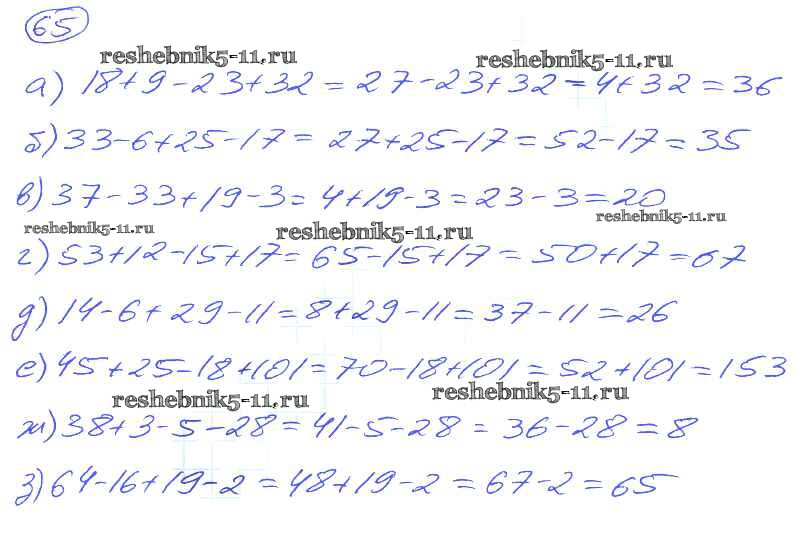 65
reshebnik5-11.ru reshebnik5-11.ru
а) 18+9-23+32 = 27-23+32 = 4+32 = 36
б) 33-6+25-17 = 27+25-17 = 52-17 = 35
в) 37-33+19-3 = 4+19-3 = 23-3 = 20
reshebnik5-11.ru reshebnik5-11.ru reshebnik5-11.ru
г) 53+12-15+17 = 65-15+17 = 50+17 = 67
д) 14-6+29-11 = 8+29-11 = 37-11 = 26
е) 45+25-18+101 = 70-18+101 = 52+101 = 153
reshebnik5-11.ru reshebnik5-11.ru
ж) 38+3-5-28 = 41-5-28 = 36-28 = 8
з) 64-16+19-2 = 48+19-2 = 67-2 = 65